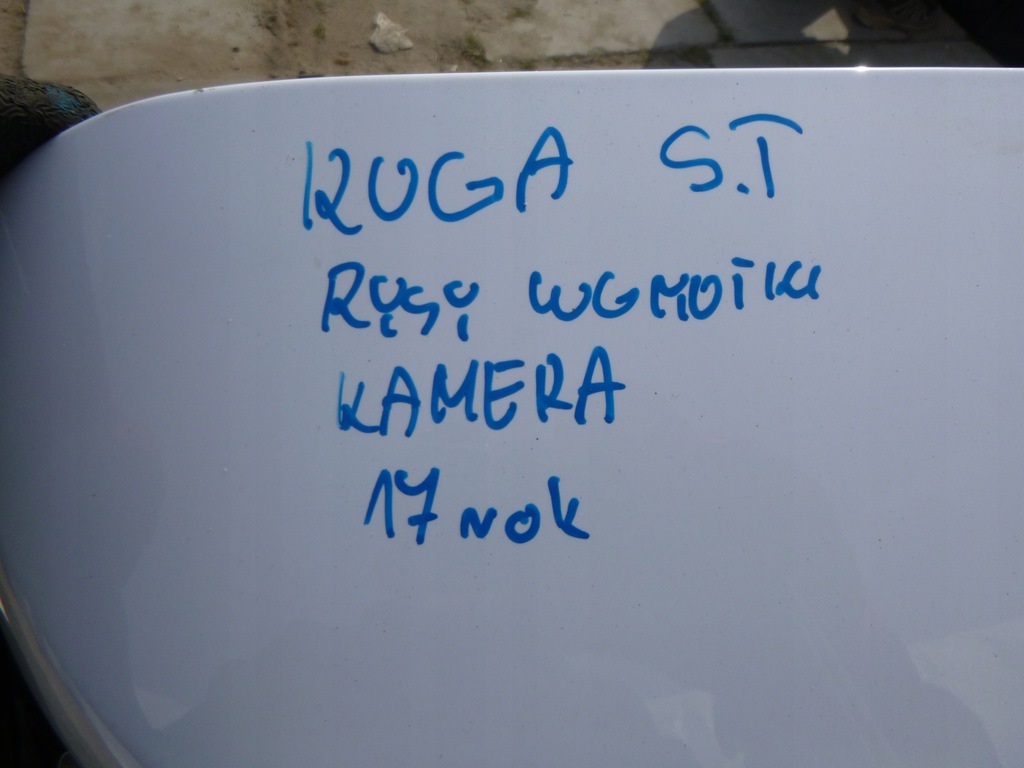 KUGA S.T
RYSY WGNIOTKI
KAMERA
17 ROK